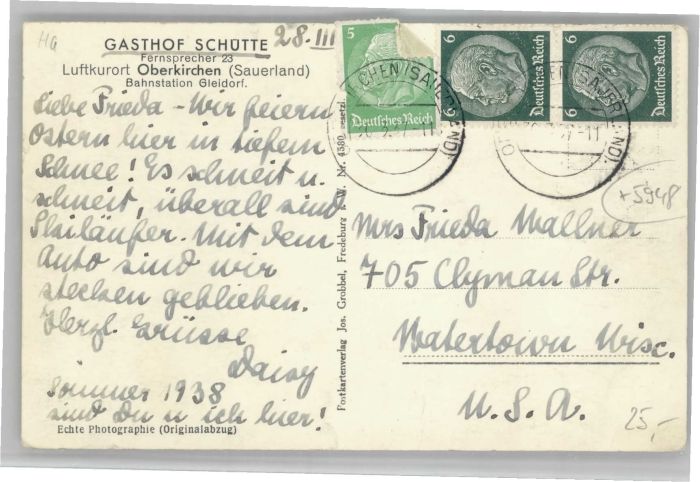 HG
GASTHOF SCHÜTTE 28.III
Fernsprecher 23
Luftkurort Oberkirchen (Sauerland)
Bahnstation Gleidorf.
Liebe Frieda - Wir feiern
Ostern hier in tiefem
Schnee! Es schneit u.
schneit, überall sind
Skiläufer. Mit dem
Auto sind wir
stecken geblieben.
Herzl. Grüsse
Daisy
Sommer 1938
sind Du u ich hier!
Echte Photographie (Originalabzug)
Postkartenverlag Jos. Grobbel, Fredeburg i. W. Nr. 4580 gesetzl.
5
Deutsches Reich
6
Deutsches Reich
6
Deutsches Reich
KIRCHEN (SAUERLAND)
KIRCHEN (SAUERLAND)
+5948
Mrs Frieda Wallner
705 Clyman Str.
Watertown Wisc.
U.S.A.
25,-